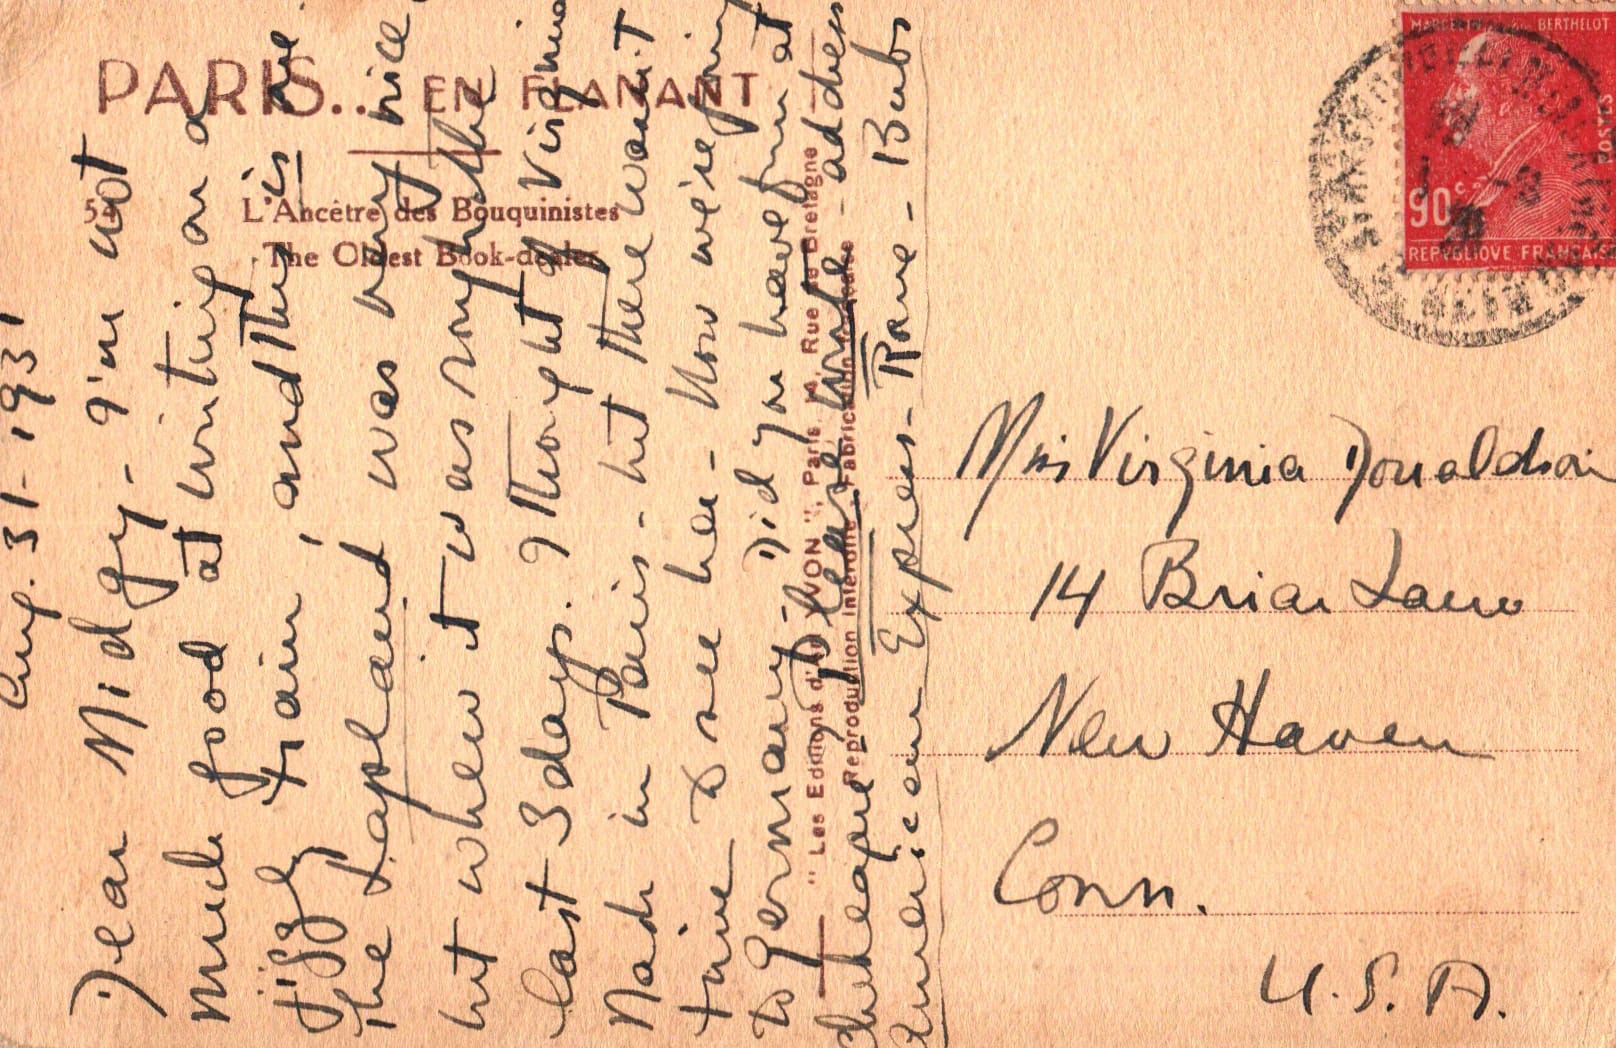 PARIS... EN FLANANT
L'Ancêtre des Bouquinistes
The Oldest Book-dealer
Aug. 31-1931
Dear Midgy - I'm not
much good at writing on a
jiggly train, and this is one.
The Lapland was very nice,
but when it was rough the
last 3 days. I thought of Virginia
Nash in Paris - but there wasn't
time to see her - Now we're going
to Germany - Did you have fun at
- Please write - address
American Express - Rome - Babs
" Les Editions d'Art YVON ", Paris, Rue de Bretagne
Reproduction Interdite - Fabrication Française
MARCELIN BERTHELOT
POSTES
90c
REPUBLIQUE FRANÇAISE
Miss Virginia Donaldson
14 Briar Lane
New Haven
Conn.
U.S.A.